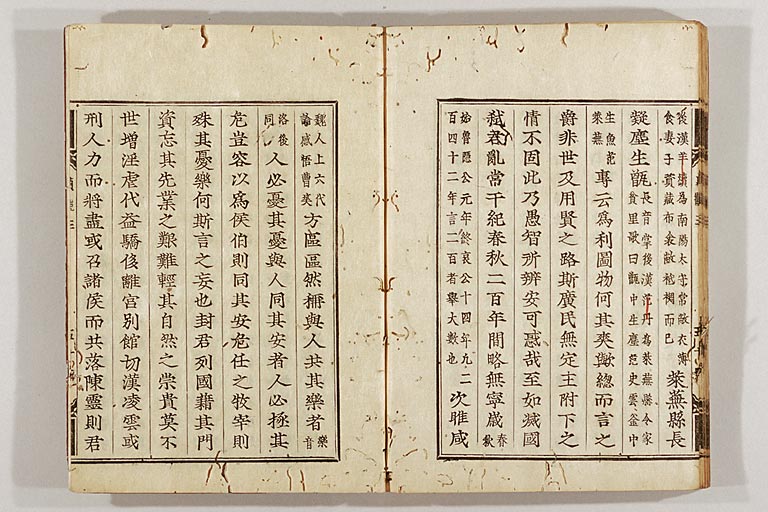 裘漢羊續為南陽太守常敝衣薄
食妻子資藏布衾敝袛裯而已
萊蕪縣長
凝塵生甑
長音掌後漢范丹為萊蕪縣令家
貧里歌曰甑中生塵范史雲釜中
生魚范
萊蕪
專云為利圖物何其爽歟總而言之
爵非世及用賢之路斯廣民無定主附下之
情不固此乃愚智所辨安可惑哉至如滅國
弒君亂常干紀春秋二百年間略無寧歲
春
秋
始魯隱公元年終哀公十四年凡二
百四十二年言二百者舉大數也
次睢咸
魏人上六代
論感悟曹爽
方區區然稱與人共其樂者
樂
音
洛後
同
人必憂其憂與人同其安者人必拯其
危豈容以為侯伯則同其安危任之牧宰則
殊其憂樂何斯言之妄也封君列國藉其門
資忘其先業之艱難輕其自然之崇貴莫不
世增淫虐代益驕侈離宮別館切漢凌雲或
刑人力而將盡或召諸侯而共落陳靈則君